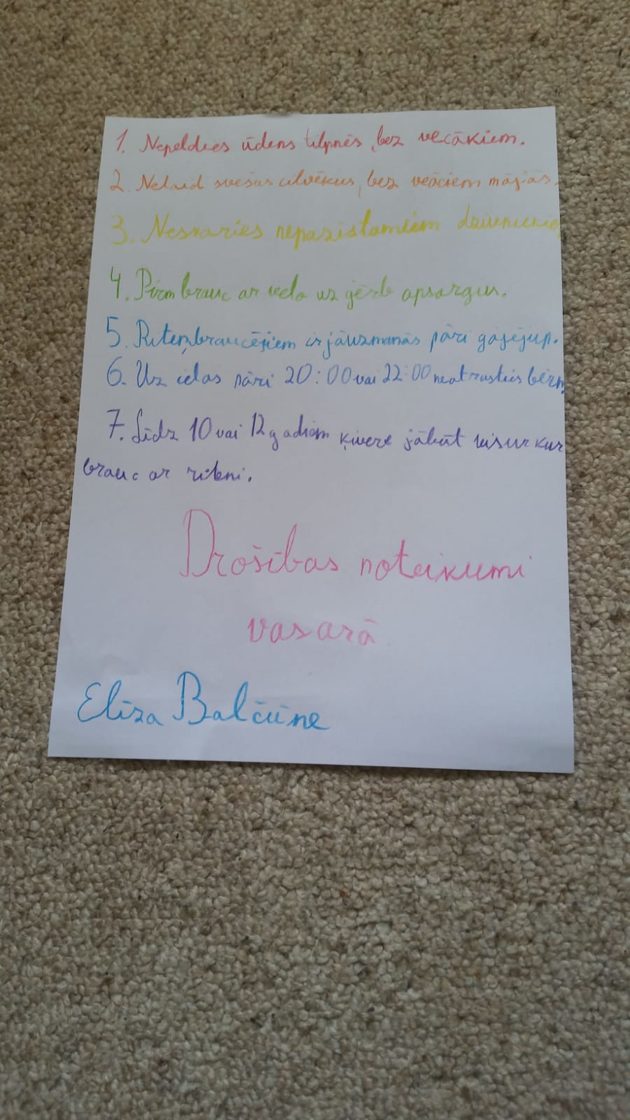 1. Nepeldies ūdens tilpnēs, bez vecākiem.
2. Nelaid svešus cilvēkus, bez vecāciem mājās.
3. Neskaries nepazīstamiem
4. Pirm brauc ar velo uz ģērb apsargus.
5. Riteņbraucējiem ir jāuzmanās pāri gājējup.
6. Uz ielas pāri 20:00 vai 22:00 neatrasties bērn
7. Līdz 10 vai 12 gadiem ķivere jābūt visur kur
brauc ar riteni.
Drošības noteikumi
vasarā
Elīza Balčūne